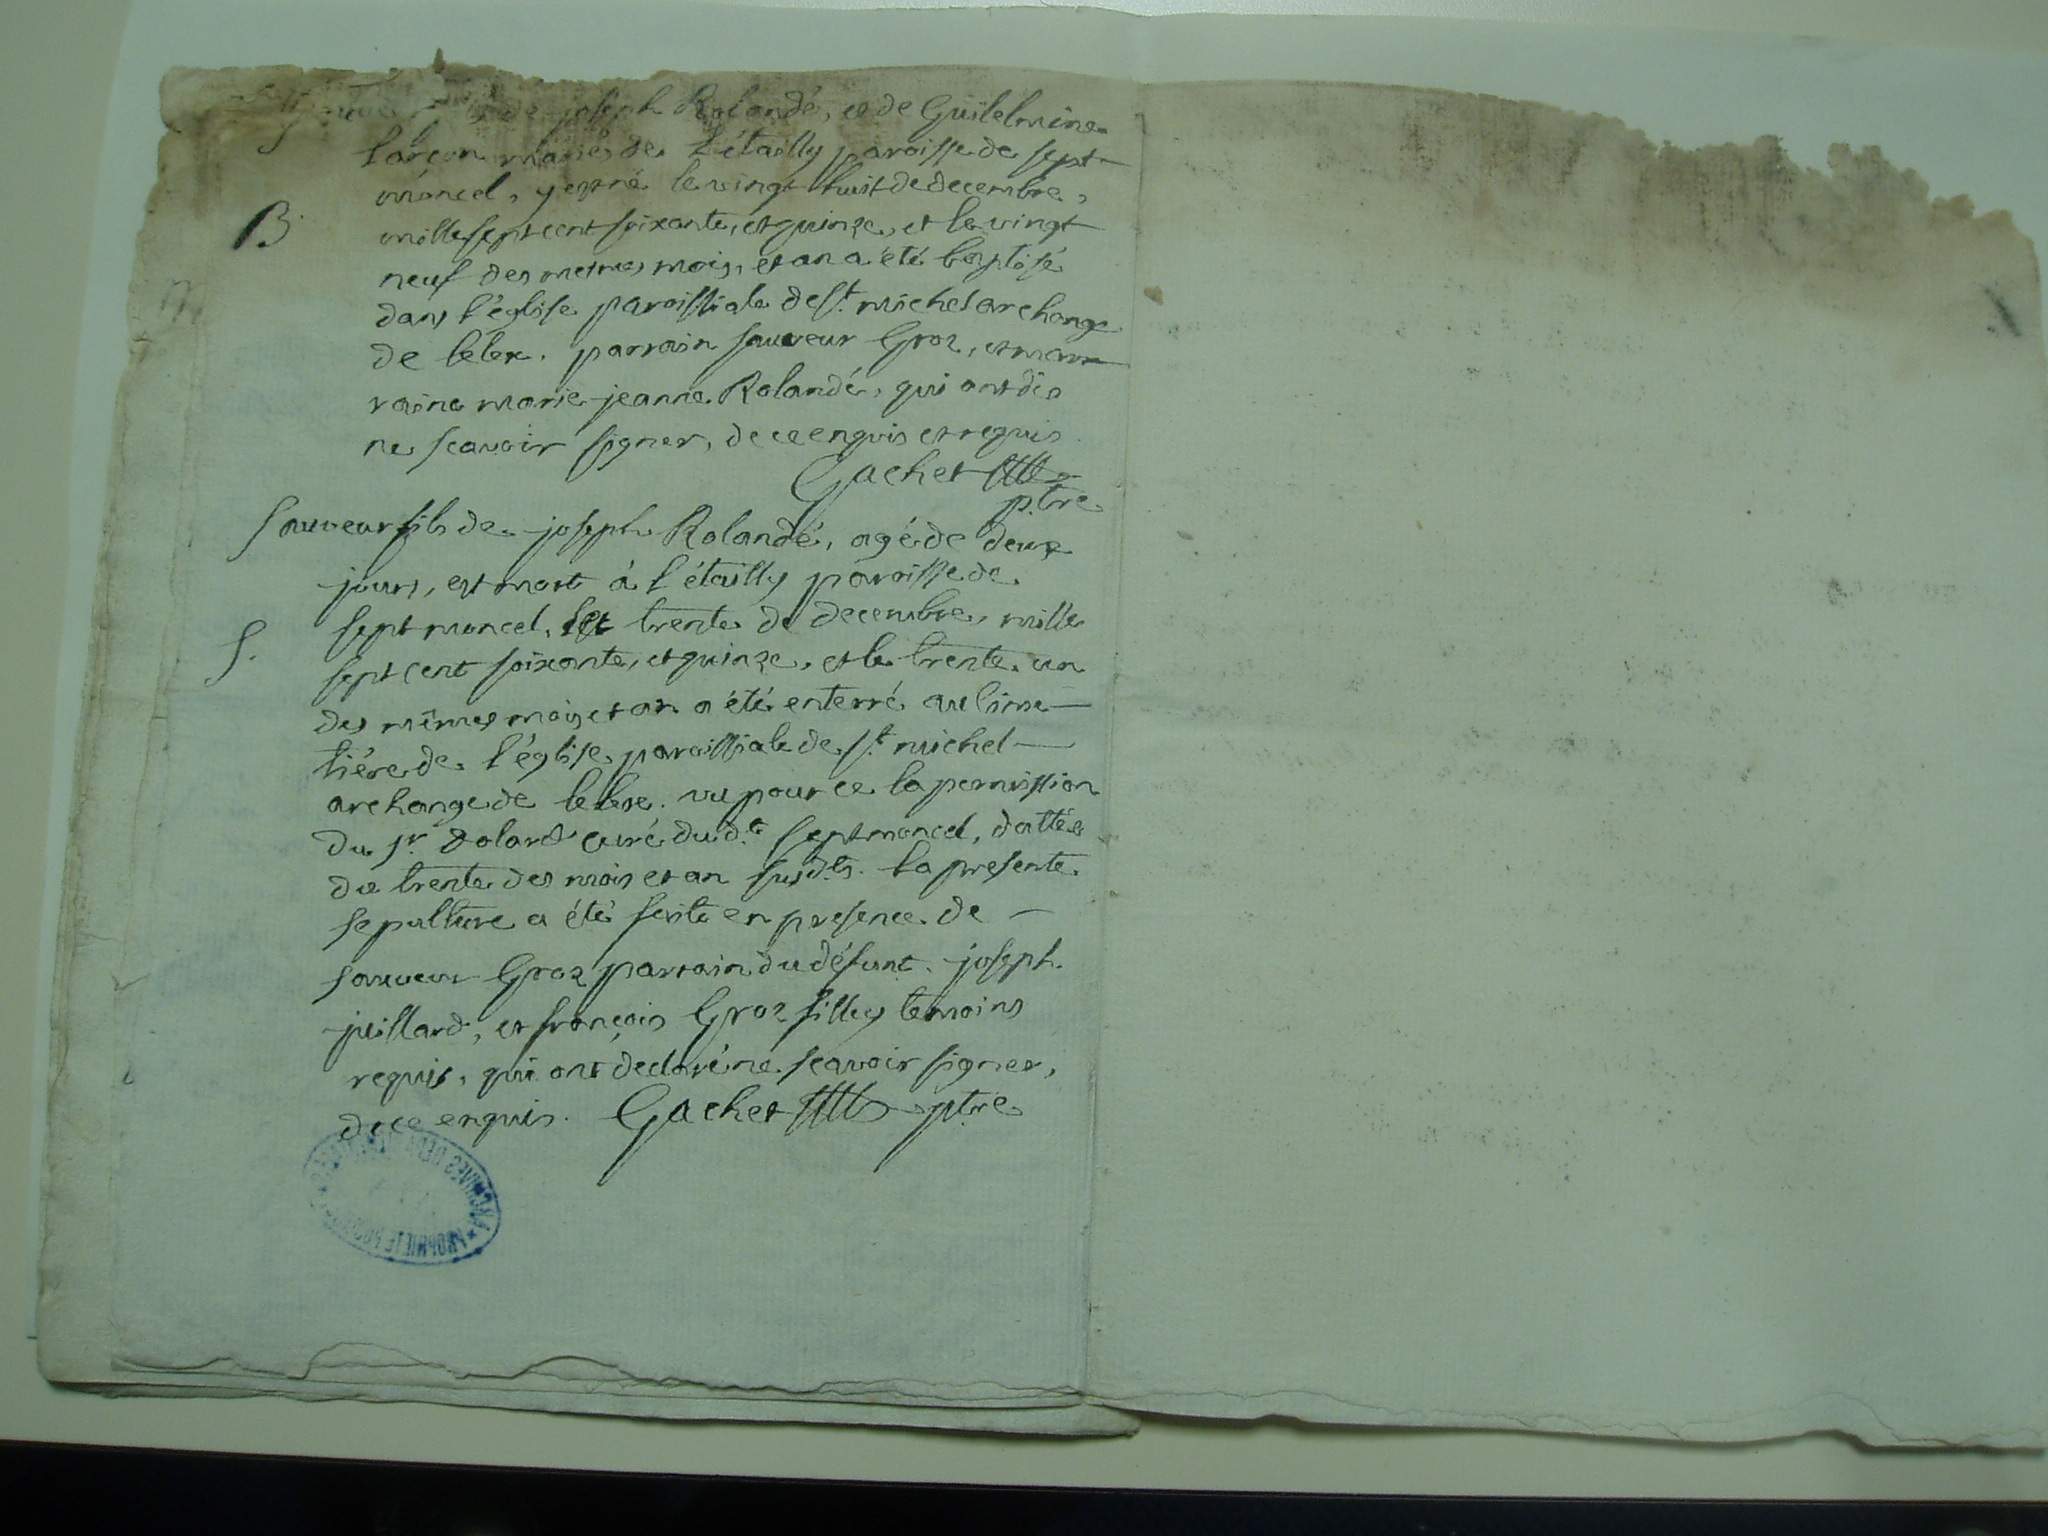 Sauveur fils de joseph Rolandé, et de Guilelmine
Larçon mariés de l'étailly paroisse de sept
moncel, y est né le vingt huit de decembre,
B. mille sept cent soixante, et quinze, et le vingt
neuf des memes mois, et an a été baptisé
dans l'église paroissiale de st. michel archange
de lelex. parrain sauveur Groz, et mar
raine marie jeanne Rolandé, qui ont dis
ne scavoir signer, de ce enquis et requis.
Gachet
ptre
Sauveur fils de joseph Rolandé, agé de deux
jours, est mort à l'étailly paroisse de
sept moncel, le trente de decembre, mille
S. sept cent soixante, et quinze, et le trente un
des mêmes mois et an a été enterré au cime
tiére de l'église paroissiale de st. michel
archange de lelex. vu pour ce la permission
du sr. Dolard curé dudt. septmoncel, dattée
du trente des mois et an susdts. la presente
sepulture a été faite en presence de
sauveur Groz parrain du défunt. joseph
juillard, et françois Groz filley temoins
requis, qui ont declaré ne scavoir signer,
de ce enquis. Gachet ptre